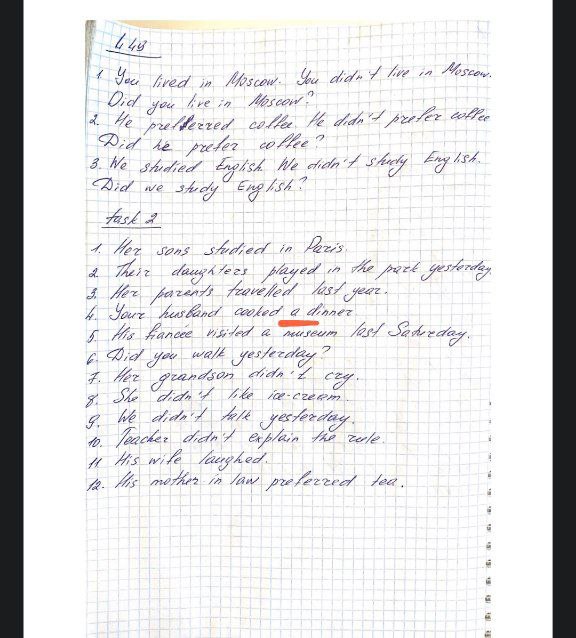 448
1 You lived in Moscow. You didn't live in Moscow.
Did you live in Moscow?
2. He preferred coffee. He didn't prefer coffee
Did he prefer coffee?
3. We studied English. We didn't study English.
Did we study English?
task 2
1. Her sons studied in Paris.
2 Their daughters played in the park yesterday
3. Her parents travelled last year.
4. Your husband cooked a dinner
5. His fiancee visited a museum last Saturday.
6. Did you walk yesterday?
7. Her grandson didn't cry.
8. She didn't like ice-cream.
9. We didn't talk yesterday.
10. Teacher didn't explain the rule.
11 His wife laughed.
12. His mother-in law preferred tea.